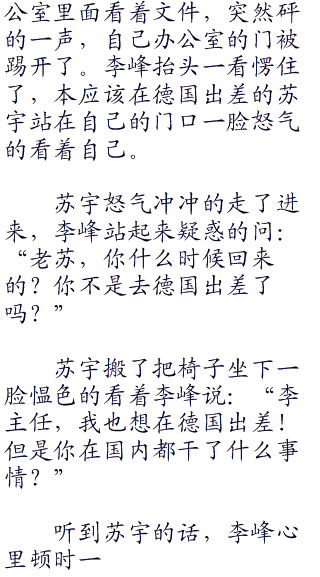 公室里面看着文件，突然砰
的一声，自己办公室的门被
踢开了。李峰抬头一看愣住
了，本应该在德国出差的苏
宇站在自己的门口一脸怒气
的看着自己。
苏宇怒气冲冲的走了进
来，李峰站起来疑惑的问：
“老苏，你什么时候回来
的？你不是去德国出差了
吗？”
苏宇搬了把椅子坐下一
脸愠色的看着李峰说：“李
主任，我也想在德国出差！
但是你在国内都干了什么事
情？”
听到苏宇的话，李峰心
里顿时一